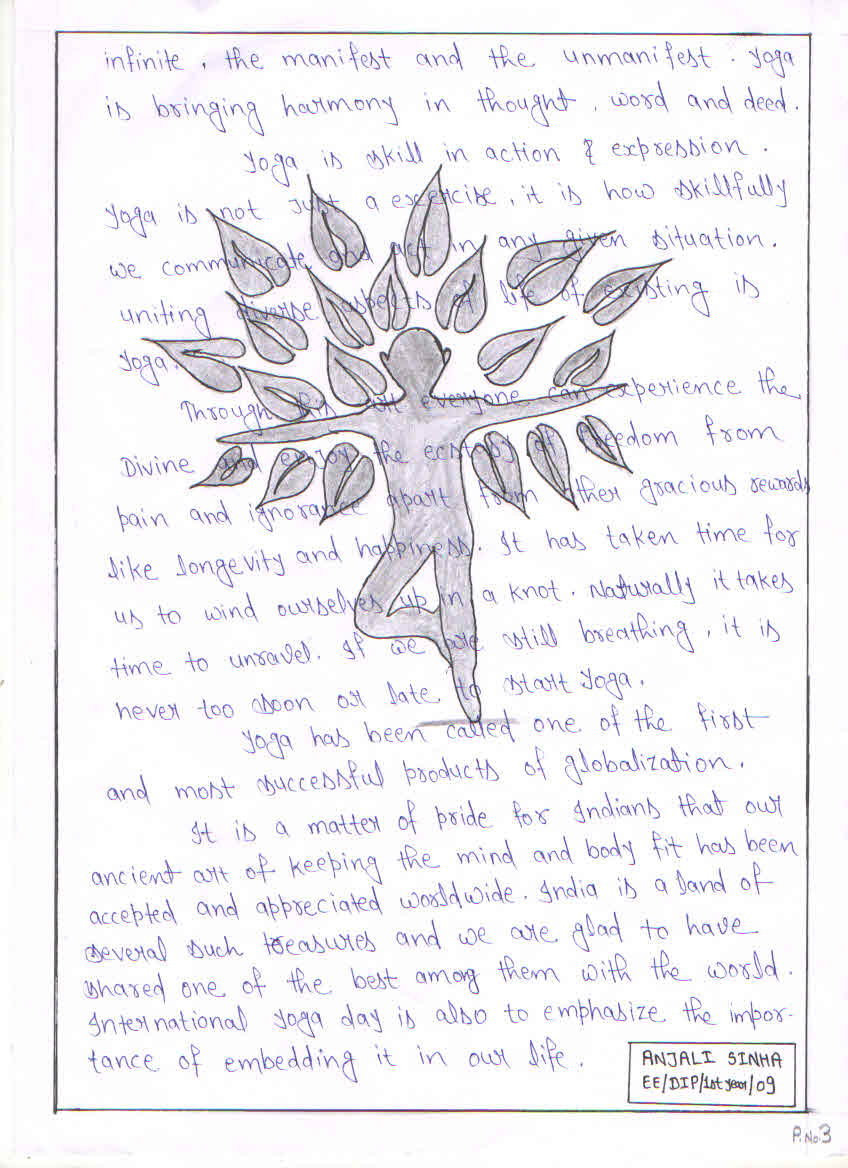 infinite, the manifest and the unmanifest. Yoga
is bringing harmony in thought, word and deed.
Yoga is skill in action & expression.
Yoga is not just a exercise, it is how skillfully
we communicate and act in any given situation.
uniting diverse aspects of life of existing is
Yoga.
Through this art everyone can experience the
Divine and enjoy the ecstasy of freedom from
pain and ignorance apart from other gracious rewards
like longevity and happiness. It has taken time for
us to wind ourselves up in a knot. Naturally it takes
time to unravel. If we are still breathing, it is
never too soon or late to start Yoga.
Yoga has been called one of the first
and most successful products of globalization.
It is a matter of pride for Indians that our
ancient art of keeping the mind and body fit has been
accepted and appreciated worldwide. India is a land of
several such treasures and we are glad to have
shared one of the best among them with the world.
International yoga day is also to emphasize the impor-
tance of embedding it in our life.
ANJALI SINHA
EE/DIP/1st year/09
P.No.3